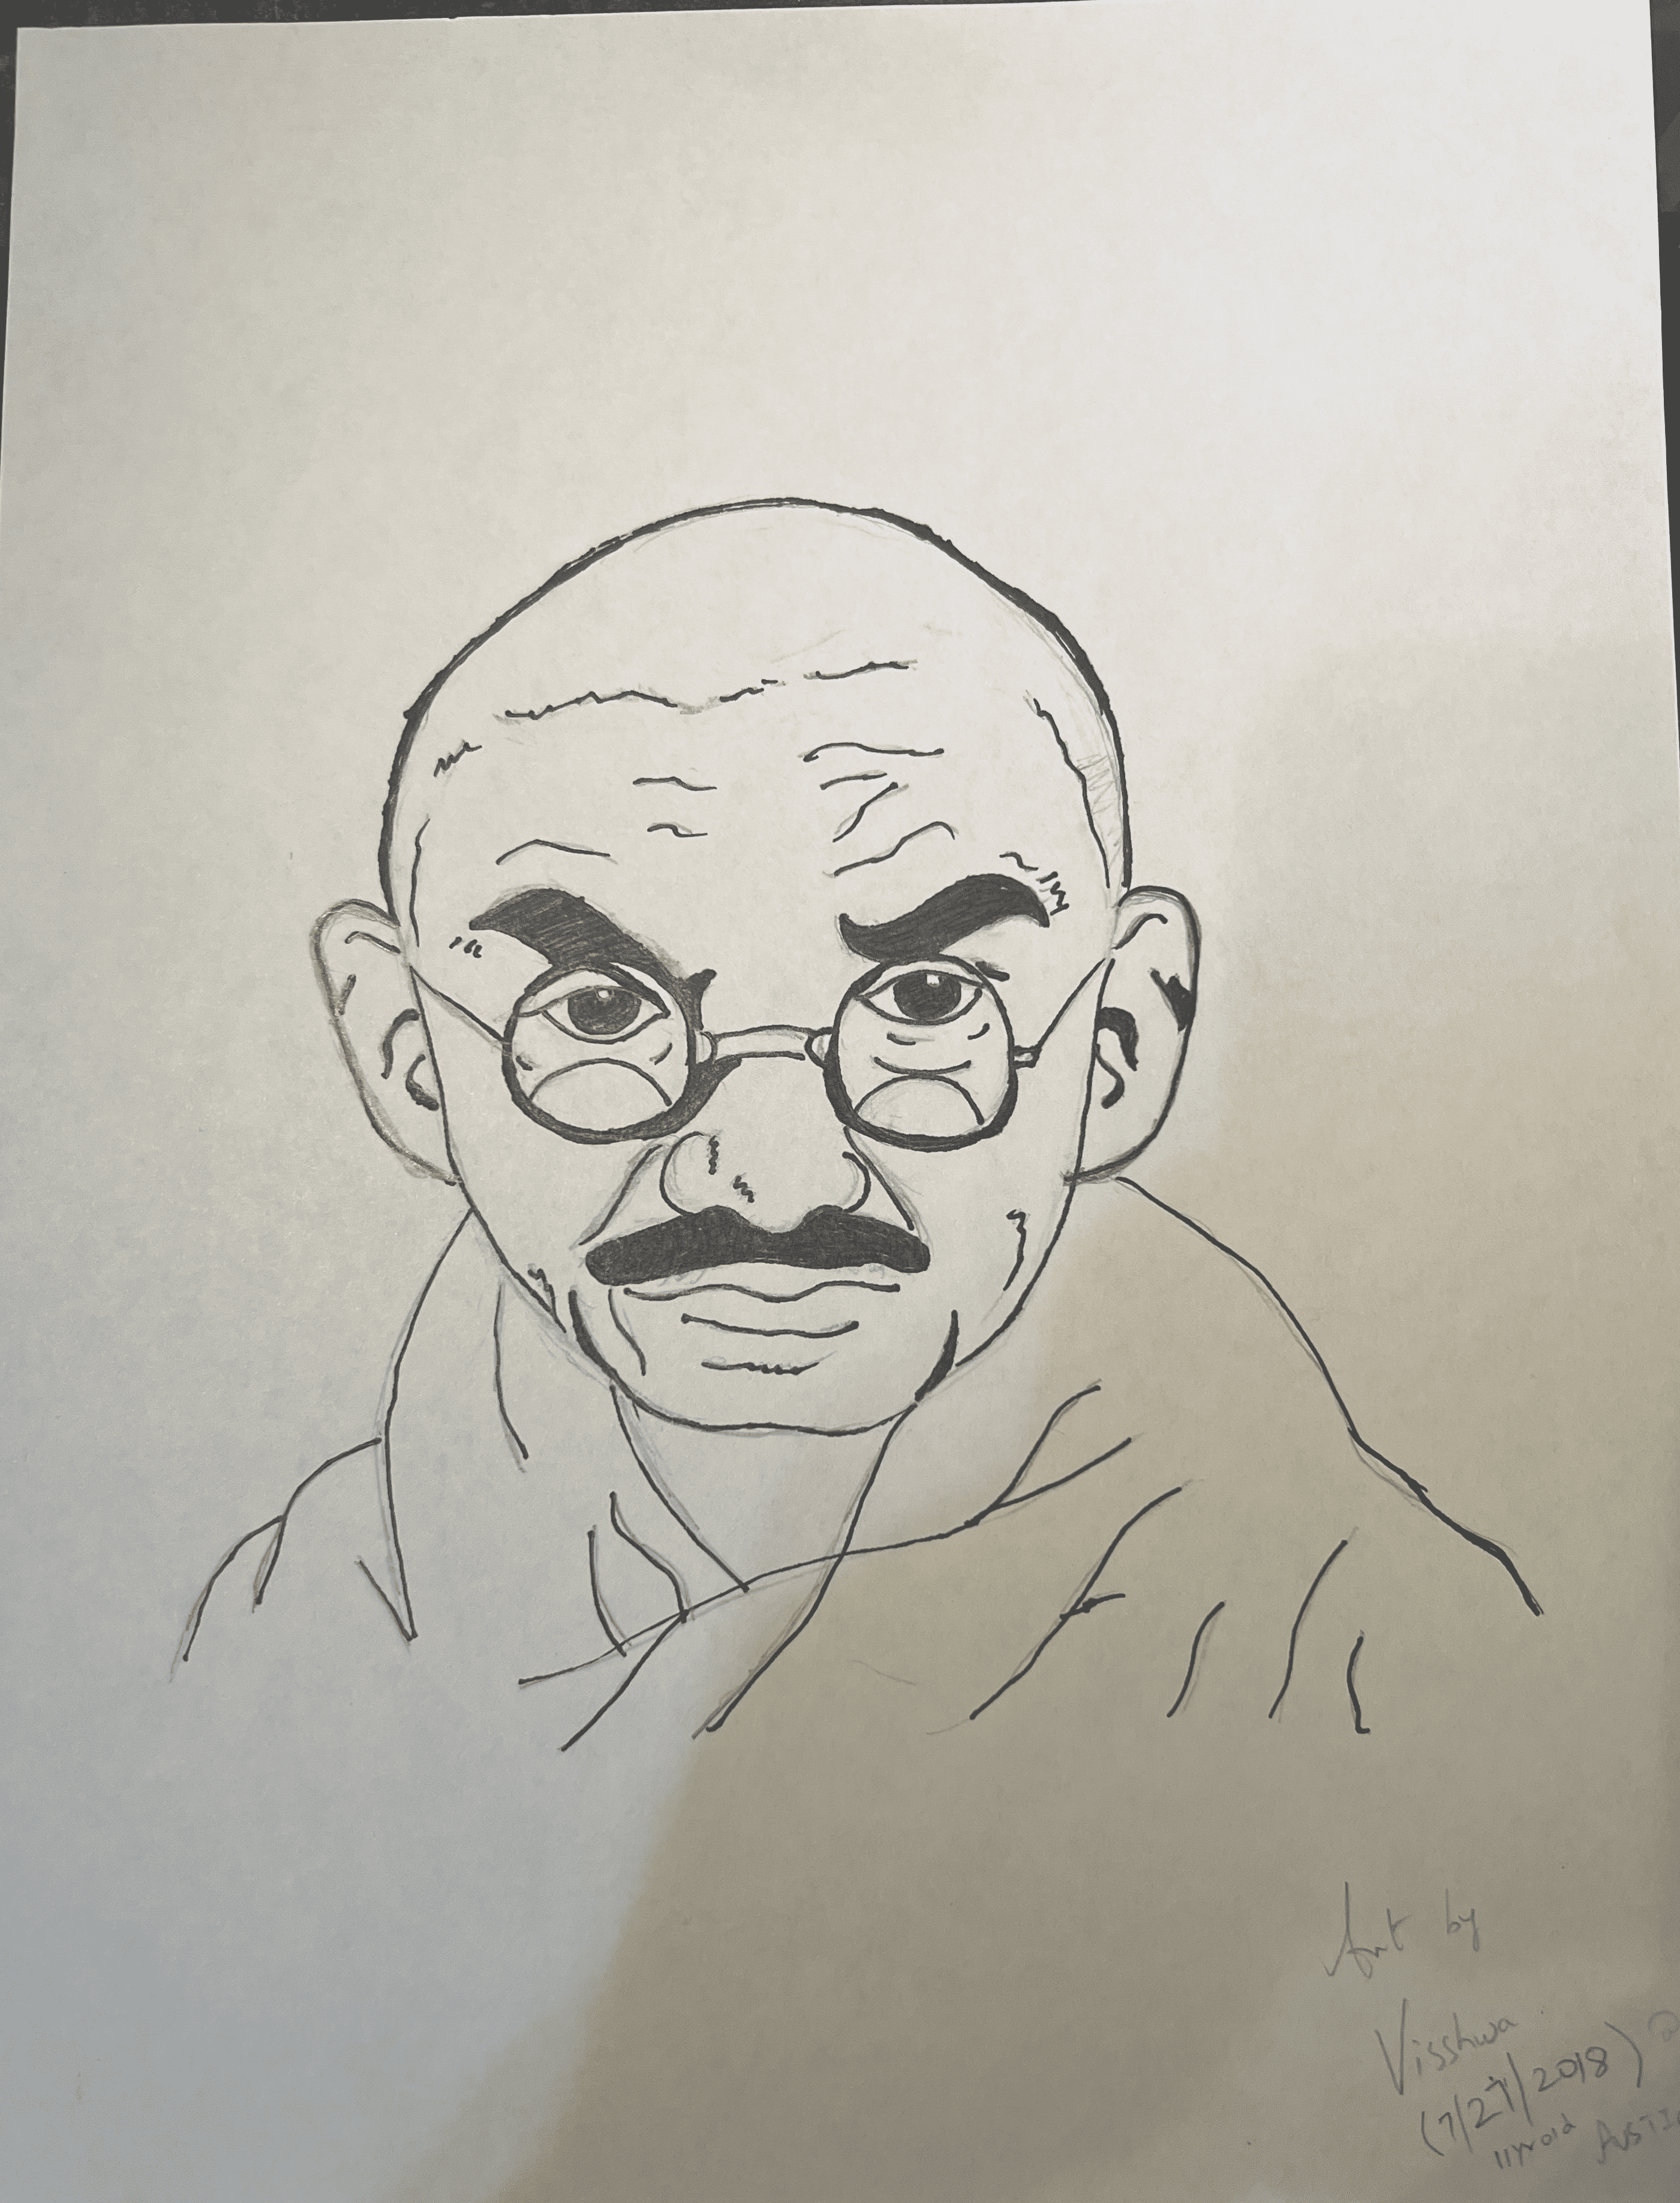 Art by
Visshwa
(7/27/2018) @
11yrold AUSTI